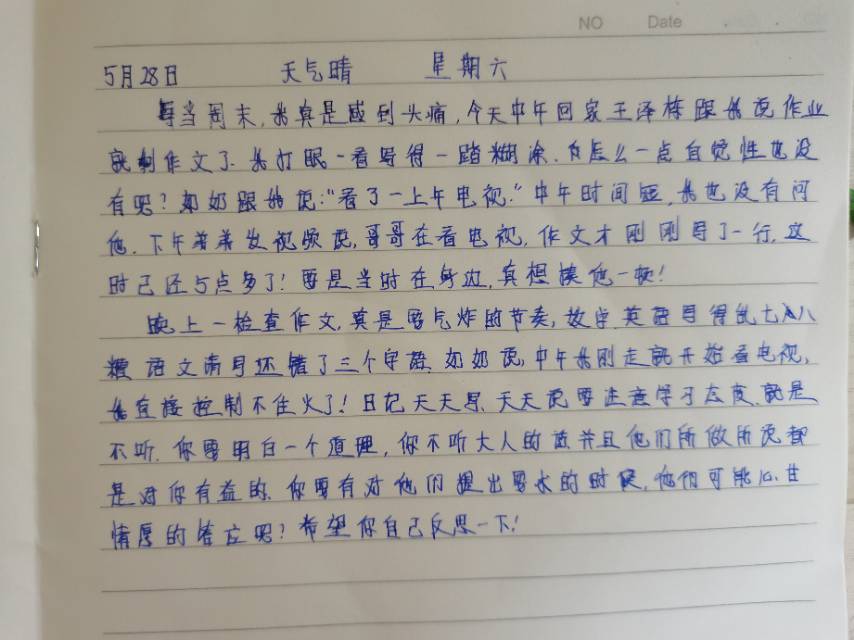 NO Date
5月28日 天气晴 星期六
每当周末,我真是感到头痛,今天中午回家王泽栋跟我说作业
就剩作文了.我打眼一看写得一踏糊涂.为怎么一点自觉性也没
有呢?奶奶跟我说:"看了一上午电视."中午时间短,我也没有问
他.下午着着发视频说,哥哥在看电视,作文才刚刚写了一行,这
时已还5点多了!要是当时在身边,真想揍他一顿!
晚上一检查作文,真是要气炸的节奏,数学.英语写得乱七八
糟 语文 错了三个字语.奶奶说,中午我刚走就开始看电视,
我直接控制不住火了!日记天天写.天天说要注意学习态度.就是
不听.你要明白一个道理,你不听大人的话并且他们所做所说都
是对你有益的.你要有对他们提出要求的时候,他们可能心甘
情愿的答应呢?希望你自己反思一下!